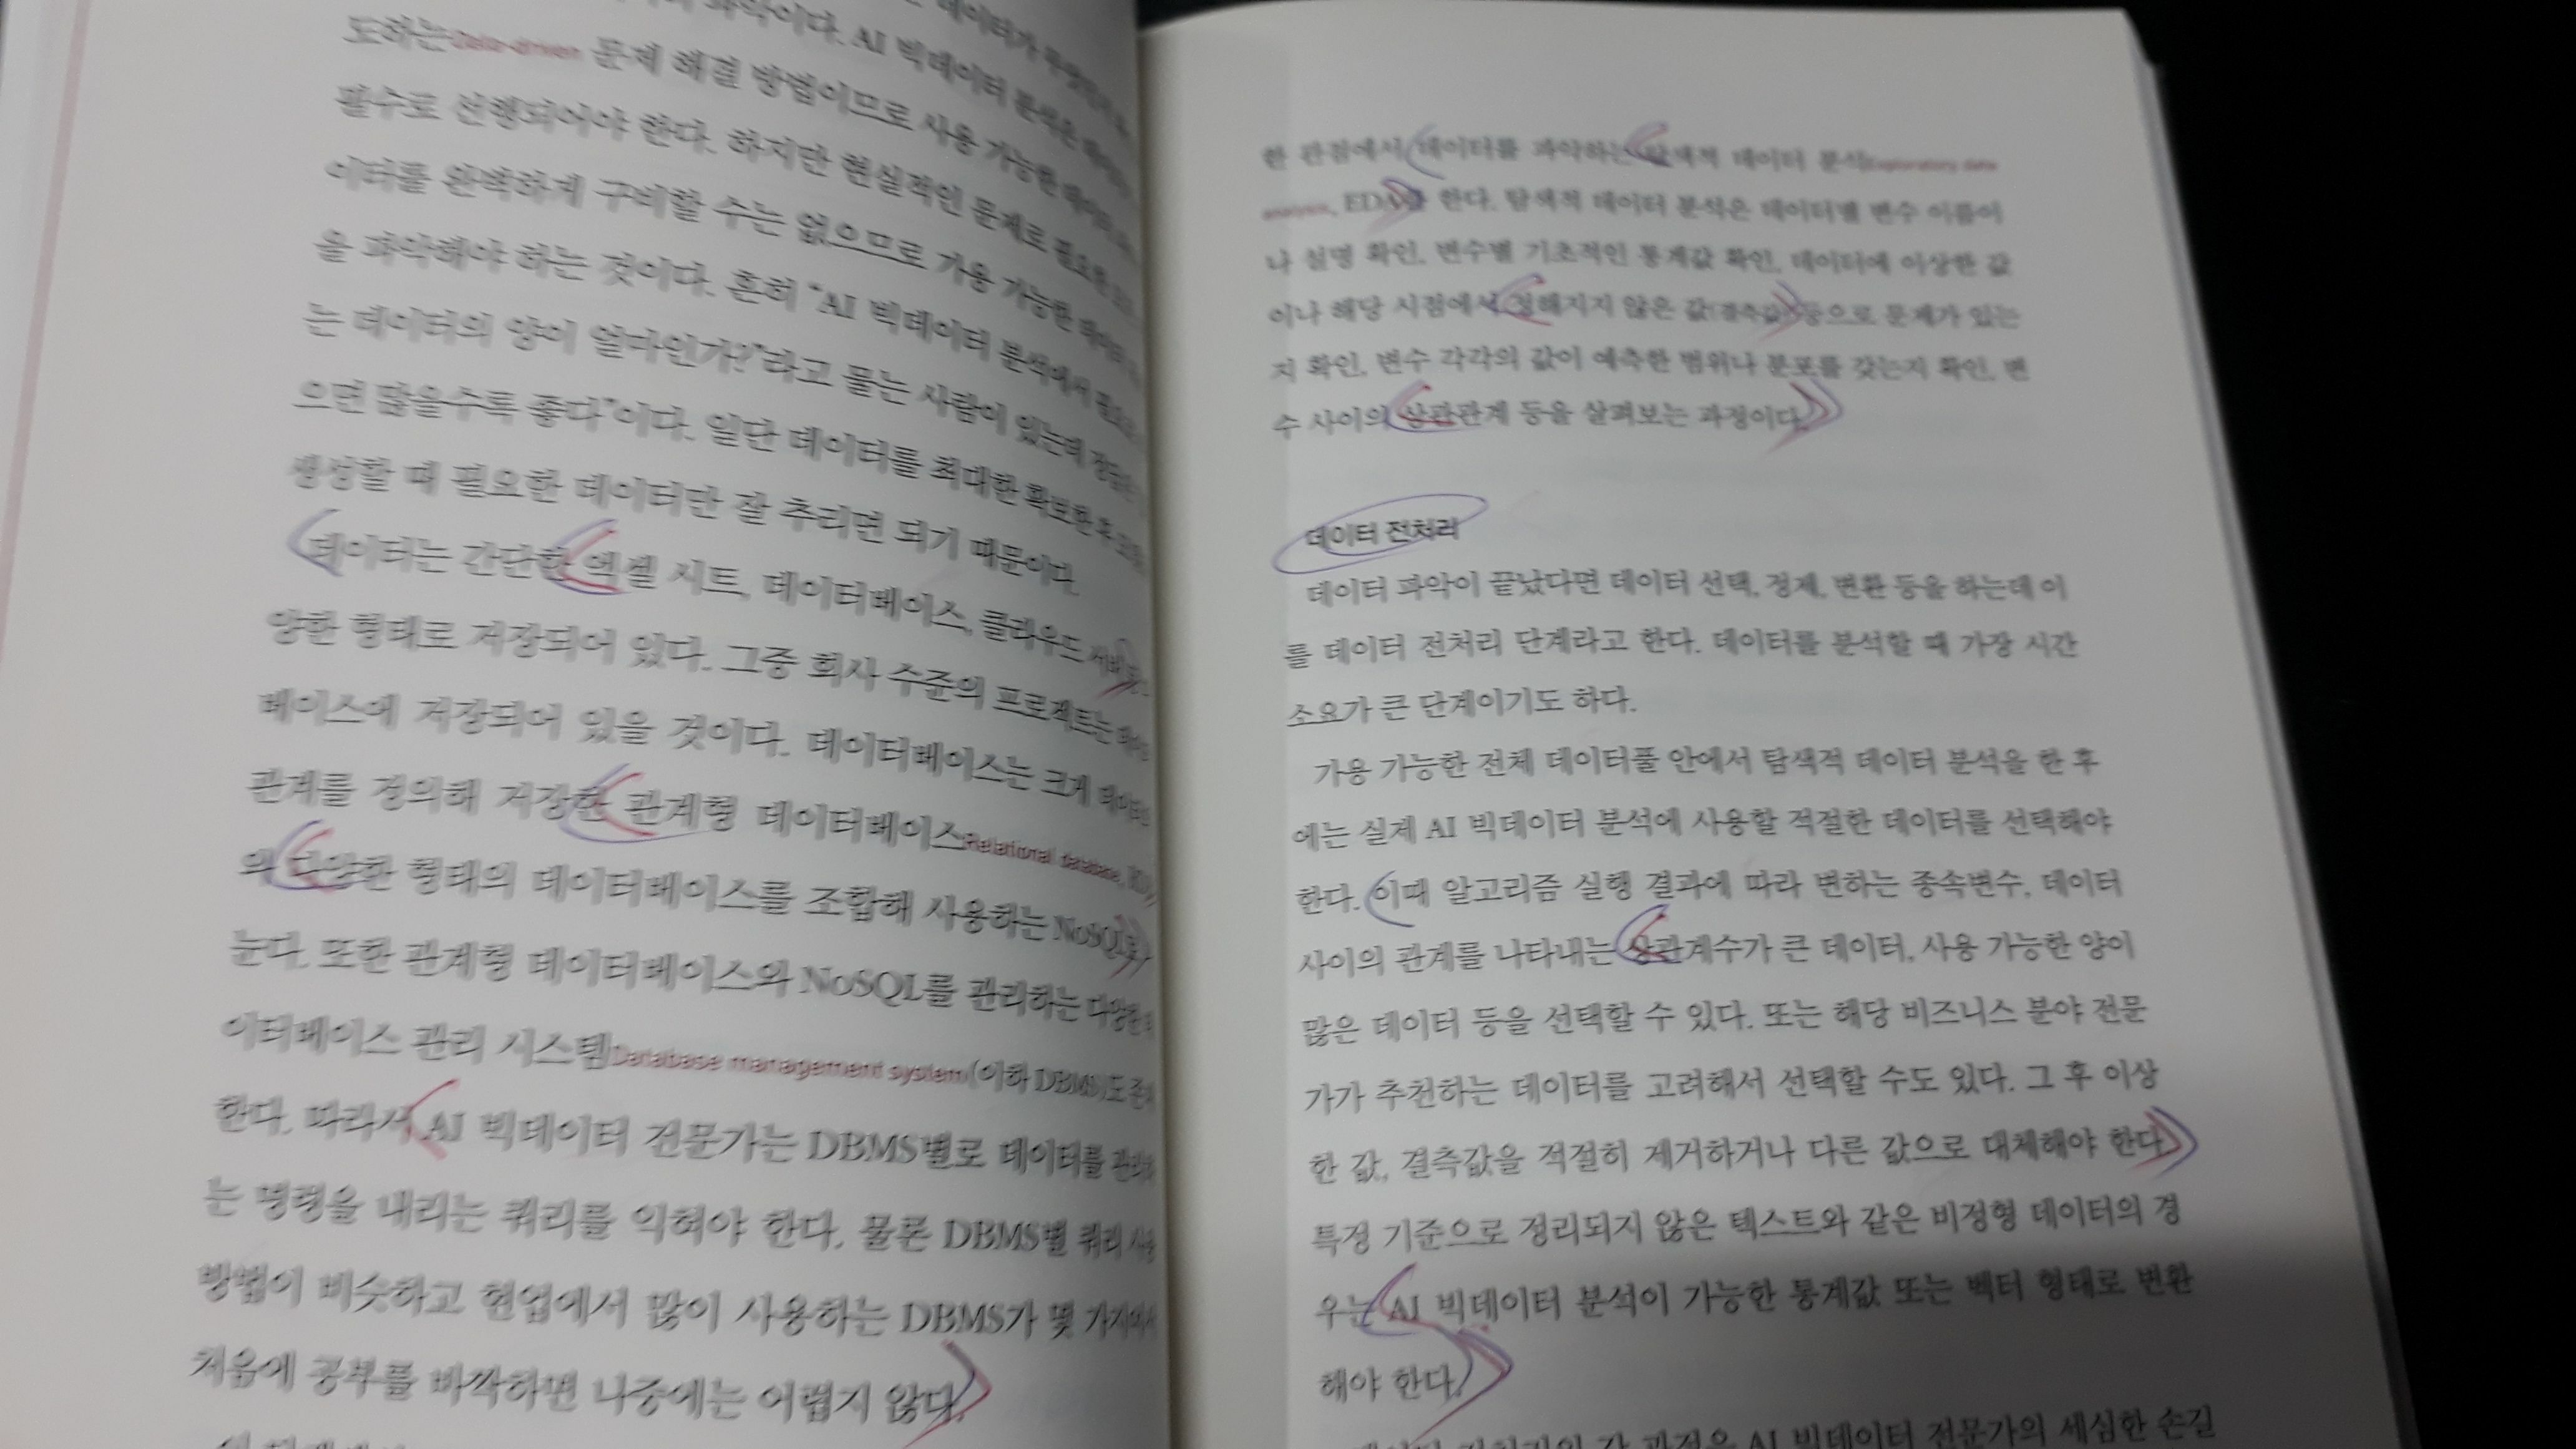 과악이다. AI 빅데이터 분석은
도하는Data-driven 문제 해결 방법이므로 사용 가능한
필수로 선행되어야 한다. 하지만 현실적인 문제로 필요한
이터를 완벽하게 구비할 수는 없으므로 가용 가능한 데이터
을 파악해야 하는 것이다. 흔히 “AI 빅데이터 분석에서 필요
는 데이터의 양이 얼마인가?”라고 묻는 사람이 있는데
으면 많을수록 좋다”이다. 일단 데이터를 최대한 확보한 후
생성할 때 필요한 데이터만 잘 추리면 되기 때문이다.
데이터는 간단한 엑셀 시트, 데이터베이스, 클라우드
양한 형태로 저장되어 있다. 그중 회사 수준의 프로젝트는
베이스에 저장되어 있을 것이다. 데이터베이스는 크게
관계를 정의해 저장한 관계형 데이터베이스Relational database,
와 다양한 형태의 데이터베이스를 조합해 사용하는 NoSQL로
눈다. 또한 관계형 데이터베이스와 NoSQL를 관리하는 다양한
이터베이스 관리 시스템Database management system(이하 DBMS)도 존재
한다. 따라서 AI 빅데이터 전문가는 DBMS별로 데이터를 관리하
는 명령을 내리는 쿼리를 익혀야 한다. 물론 DBMS별 쿼리 사용
방법이 비슷하고 현업에서 많이 사용하는 DBMS가 몇
처음에 공부를 바짝하면 나중에는 어렵지 않다.
한 관점에서 데이터를 파악하는 탐색적 데이터 분석Exploratory data
analysis, EDA를 한다. 탐색적 데이터 분석은 데이터별 변수 이름이
나 설명 확인, 변수별 기초적인 통계값 확인, 데이터에 이상한 값
이나 해당 시점에서 정해지지 않은 값(결측값) 등으로 문제가 있는
지 확인, 변수 각각의 값이 예측한 범위나 분포를 갖는지 확인, 변
수 사이의 상관관계 등을 살펴보는 과정이다.
데이터 전처리
데이터 파악이 끝났다면 데이터 선택, 정제, 변환 등을 하는데 이
를 데이터 전처리 단계라고 한다. 데이터를 분석할 때 가장 시간
소요가 큰 단계이기도 하다.
가용 가능한 전체 데이터풀 안에서 탐색적 데이터 분석을 한 후
에는 실제 AI 빅데이터 분석에 사용할 적절한 데이터를 선택해야
한다. 이때 알고리즘 실행 결과에 따라 변하는 종속변수, 데이터
사이의 관계를 나타내는 상관계수가 큰 데이터, 사용 가능한 양이
많은 데이터 등을 선택할 수 있다. 또는 해당 비즈니스 분야 전문
가가 추천하는 데이터를 고려해서 선택할 수도 있다. 그 후 이상
한 값, 결측값을 적절히 제거하거나 다른 값으로 대체해야 한다.
특정 기준으로 정리되지 않은 텍스트와 같은 비정형 데이터의 경
우는 AI 빅데이터 분석이 가능한 통계값 또는 벡터 형태로 변환
해야 한다.
AI 빅데이터 전문가의 세심한 손길